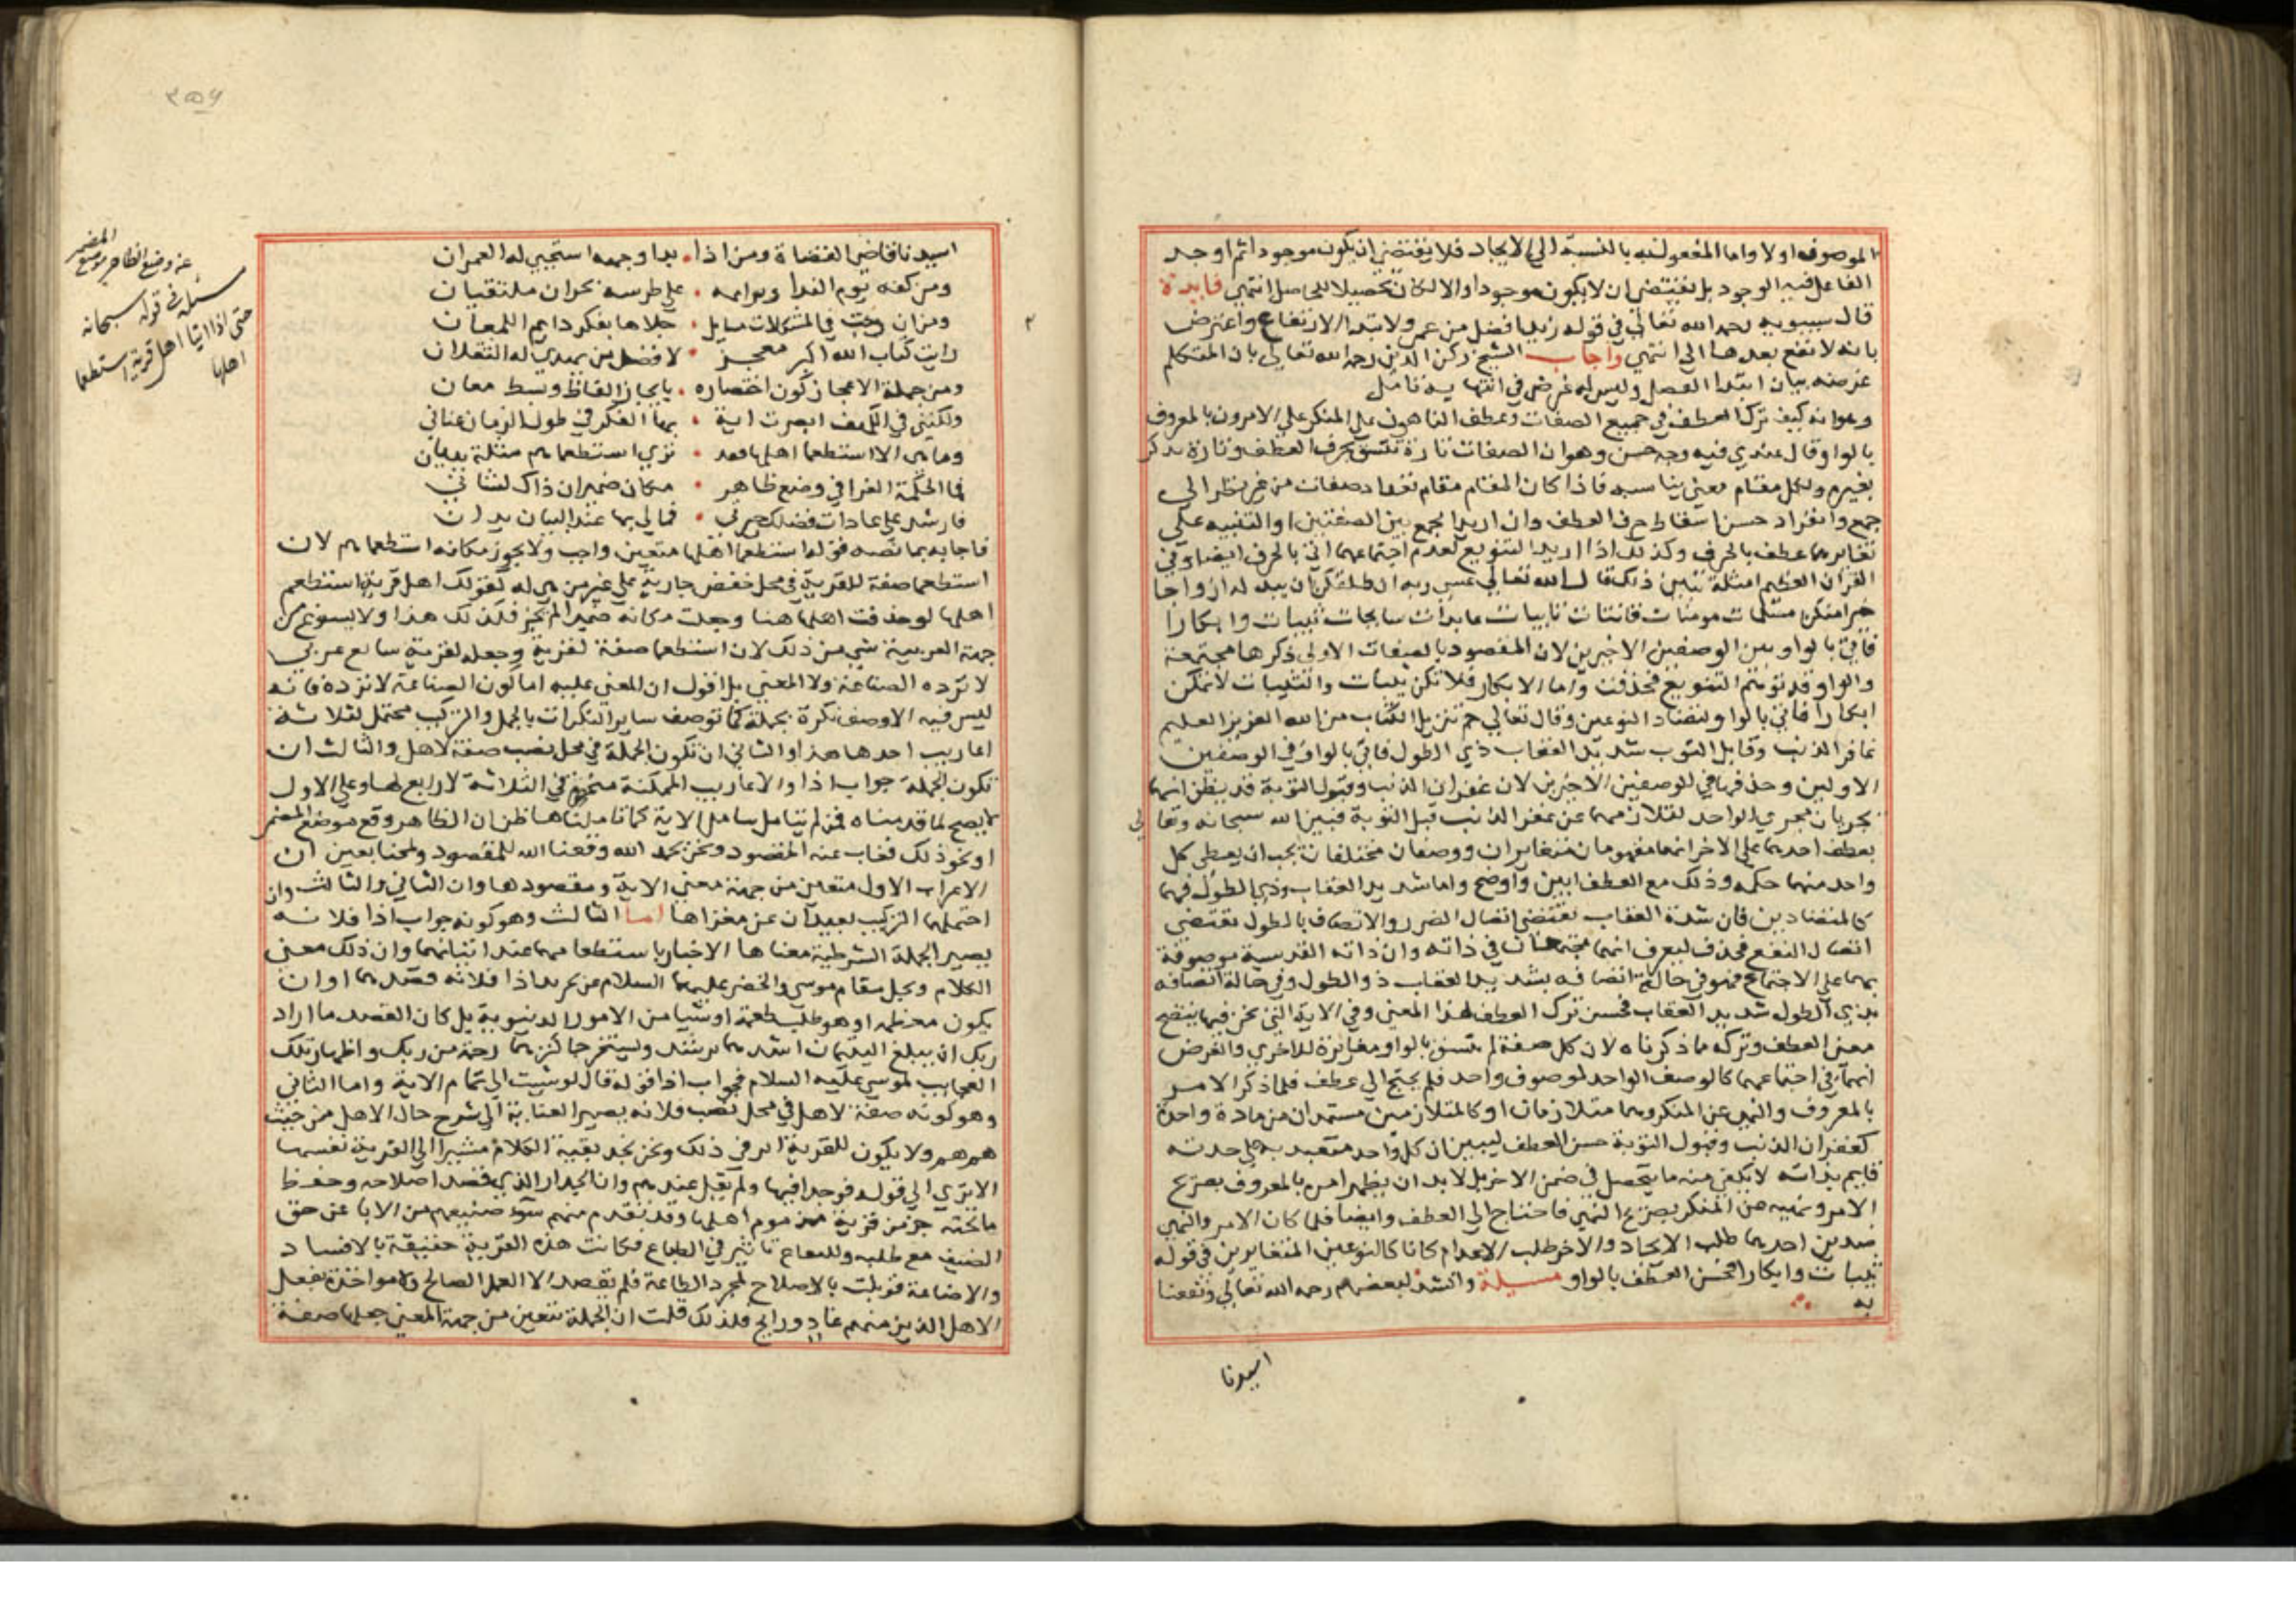 الموصوف اولا واما المفعول فيه بالنسبة الى الايجاد فلا يقتضي ان يكون موجودا ثم اوجد
الفاعل فيه الوجود بل يقتضي ان لا يكون موجودا والا لكان تحصيلا للحاصل انتهى فايدة
قال سيبويه رحمه الله تعالى في قوله زيد افضل من عمرو لابتداء الارتفاع واعترض
بانه لا تقع بعدها الى انتهى واجاب الشيخ ركن الدين رحمه الله تعالى بان المتكلم
غرضه بيان ابتدا الفضل وليس له غرض في انتهايه تامل
وهو انه كيف ترك العطف في جميع الصفات وعطف الناهون على المنكر على الامرون بالمعروف
بالواو قال عندي فيه وجه حسن وهو ان الصفات تارة تنسق بحرف العطف وتارة تذكر
بغيره ولكل مقام معنى يناسبه فاذا كان المقام مقام تعداد صفات من غير نظر الى
جمع وانفراد حسن اسقاط حرف العطف وان اريد الجمع بين الصفتين او التنبيه على
تغايرهما عطف بالحرف وكذلك اذا اريد التنويع لعدم اجتماعهما اتى بالحرف ايضا وفي
القران العظيم امثلة تبين ذلك قال الله تعالى عسى ربه ان طلقكن ان يبدله ازواجا
خيرا منكن مسلمات مومنات قانتات تايبات عابدات سايحات ثيبات وابكارا
فاتى بالواو بين الوصفين الاخيرين لان المقصود بالصفات الاولى ذكرها مجتمعة
والواو قد توهم التنويع فحذفت واما الابكار فلا تكن ثيبات والثيبات لا تكن
ابكارا فاتى بالواو لتضاد النوعين وقال تعالى حم تنزيل الكتاب من الله العزيز العليم
غافر الذنب وقابل التوب شديد العقاب ذي الطول فاتى بالواو في الوصفين
الاولين وحذفها في الوصفين الاخيرين لان غفران الذنب وقبول التوبة قد يظن انهما
يجريان مجرى الواحد لتلازمهما عن غفر الذنب قبل التوبة فبين الله سبحانه وتعالى
بعطف احدهما على الاخر انهما مفهومان متغايران ووصفان مختلفان يجب ان يعطى كل
واحد منهما حكمه وذلك مع العطف ابين واوضح واما شديد العقاب وذي الطول فهما
كالمتضادين فان شدة العقاب تقتضي اتصال الضرر والاتصاف بالطول يقتضي
اتصال النفع فحذف ليعرف انهما مجتمعان في ذاته وان ذاته القدسية موصوفة
بهما على الاجتماع فهو في حالة اتصافه بشديد العقاب ذو الطول وفي حالة اتصافه
بذي الطول شديد العقاب فحسن ترك العطف لهذا المعنى وفي الاية التي نحن فيها يتضح
معنى العطف وتركه مما ذكرناه لان كل صفة لم تنسق بالواو مغايرة للاخرى والغرض
انهما في اجتماعهما كالوصف الواحد لموصوف واحد فلم يحتج الى عطف فلما ذكر الامر
بالمعروف والنهي عن المنكر وهما متلازمان او كالمتلازمين مستمدان من مادة واحدة
كغفران الذنب وقبول التوبة حسن العطف ليبين ان كل واحد متعبد به على حدته
قايم بذاته لا يكفي منه ما يحصل في ضمن الاخر بل لا بد ان يظهر امره بالمعروف بصريح
الامر ونهيه عن المنكر بصريح النهي فاحتاج الى العطف وايضا فلما كان الامر والنهي
ضدين احدهما طلب الايجاد والاخر طلب الاعدام كانا كالنوعين المتغايرين في قوله
ثيبات وابكارا فحسن العطف بالواو مسيلة وانشد لبعضهم رحمه الله تعالى ونفعنا
به
اسيدنا
اسيدنا قاضي القضاة ومن اذا ۰ بدا وجهه استحيى له القمران
ومن كفه يوم الندا ويراعه ۰ على طرسه بحران ملتقيان
ومن ان دجت في المشكلات مسايل ۰ جلاها بفكر دايم اللمعان
رايت كتاب الله اكبر معجز ۰ لافضل من يهدي به الثقلان
ومن جملة الاعجاز كون اختصاره ۰ بايجاز الفاظ وبسط معان
ولكنني في الكهف ابصرت اية ۰ بها الفكر في طول الزمان عناني
وما هي الا استطعما اهلها فقد ۰ نرى استطعماهم مثله ببيان
فما الحكمة الغرا في وضع ظاهر ۰ مكان ضمير ان ذاك لشاني
فارشد على عادات فضلك حيرتي ۰ فمالي بها عند البيان يدان
فاجابه بما نصه قوله استطعما اهلها متعين واجب ولا يجوز مكانه استطعماهم لان
استطعما صفة للقرية في محل خفض جارية على غير من هي له كقولك اهل قرية استطعم
اهلها لو حذفت اهلها هنا وجعلت مكانه ضميرا لم يجز فكذلك هذا ولا يسوغ من
جهة العربية شي من ذلك لان استطعما صفة لقرية وجعله لقرية سايغ عربي
لا ترده الصناعة ولا المعنى بل اقول ان المعنى عليه اما كون الصناعة لا ترده فانه
ليس فيه الا وصف نكرة بجملة كما توصف ساير النكرات بالجمل والتركيب محتمل لثلاثة
اعاريب احدها هذا والثاني ان تكون الجملة في محل نصب صفة لاهل والثالث ان
تكون الجملة جواب اذا والاعاريب الممكنة منحصرة في الثلاثة لا رابع لها وعلى الاول
لا يصح لما قدمناه فمن لم يتامل الاية كما تاملناها ظن ان الظاهر وقع موضع المضمر
او نحو ذلك فغاب عنه المقصود ونحن بحمد الله وفقنا الله للمقصود ولمحنا بعين ان
الاعراب الاول متعين من جهة معنى الاية ومقصودها وان الثاني والثالث وان
احتملهما التركيب بعيدان عن مغزاها اما الثالث وهو كونه جواب اذا فلانه
يصير الجملة الشرطية معناها الاخبار باستطعامهما عند اتيانهما وان ذلك معنى
الكلام ويجل مقام موسى والخضر عليهما السلام عن تجريد اذا فلانه قصدهما او ان
يكون معظمه او هو طلب طعمة او شيا من الامور الدنيوية بل كان القصد ما اراد
ربك ان يبلغ اليتيمان اشدهما برشد ويستخرجا كنزهما رحمة من ربك واظهار تلك
العجايب لموسى عليه السلام فجواب اذا قوله قال لو شيت الى تمام الاية واما الثاني
وهو كونه صفة لاهل في محل نصب فلانه يصير العناية الى شرح حال الاهل من حيث
هم هم ولا يكون للقرية اثر في ذلك ونحن نجد بقية الكلام مشيرا الى القرية نفسها
الا ترى الى قوله فوجدا فيها ولم يقل عندهم وان الجدار الذي قصد اصلاحه وحفظ
ما تحته جزء من قرية مذموم اهلها وقد تقدم منهم سوء صنيعهم من الابا عن حق
الضيف مع طلبه وللبقاع تاثير في الطباع فكانت هذه القرية حقيقة بالافساد
والاضاعة فقوبلت بالاصلاح لمجرد الطاعة فلم يقصد الا العمل الصالح ولا مواخذة بفعل
الاهل الذين منهم غاد ورايح فلذلك قلت ان الجملة تتعين من جهة المعنى جعلها صفة
مسئلة في قوله سبحانه
حتى اذا اتيا اهل قرية استطعما
اهلها
عن وضع الظاهر موضع
المضمر